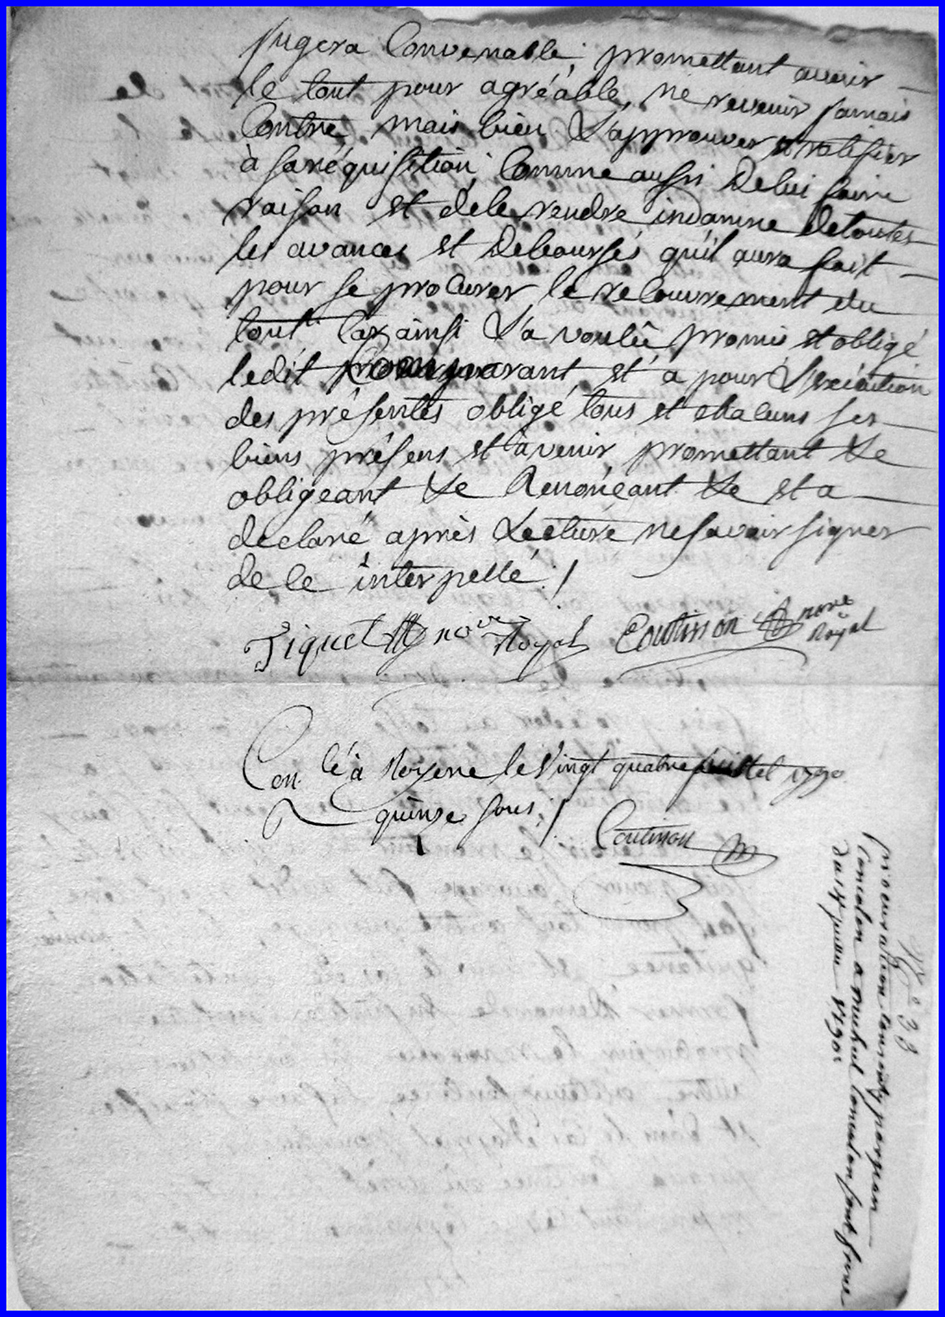 jugera Convenable promettant avoir
le tout pour agréable, ne revenir jamais
Contre, mais bien L'approuver et ratifier
à sa réquisition, Comme aussi De lui faire
raison et de le rendre indamne de toutes
les avances et Deboursés qu'il aura fait
pour se procurer le recouvrement du
tout Car ainsi L'a voulû promis et obligé
ledit Comparant et a pour L'exécution
des présentes obligé tous et chacuns ses
biens présens et avenir promettant &c
obligeant &c Renonceant &c et a
declaré après Lecture ne savoir signer
de ce interpellé /
Tiquet nore Royal Coutisson nore Royal
Con lé à Noyene le Vingt quatre juillet 1790
R quinze sous, / Coutisson
No 33
procuration par jean
a michel
du juin 1790